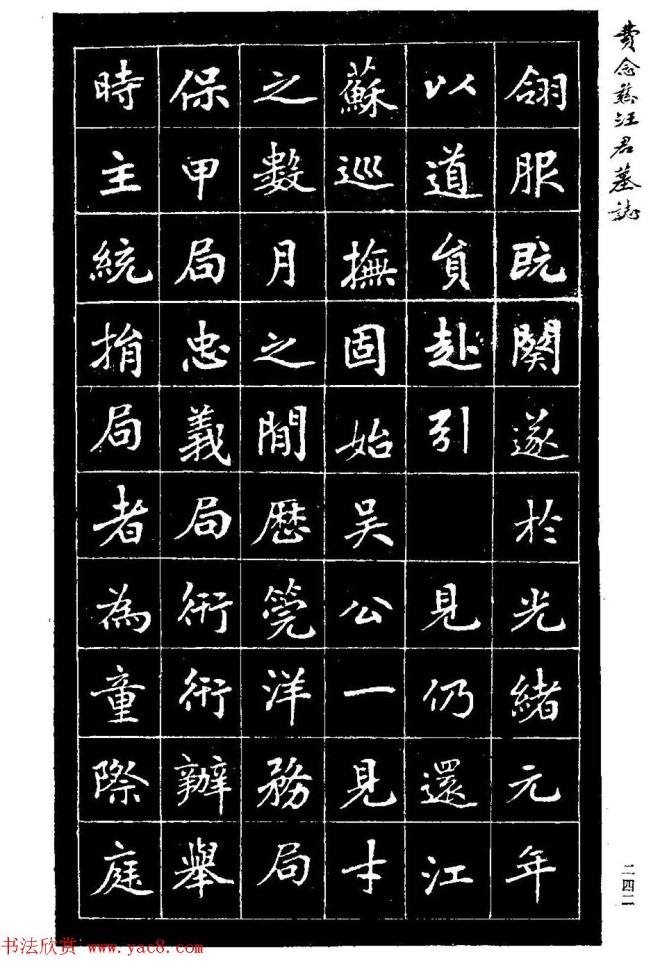 費念慈汪君墓誌
翕服既闋遂於光緒元年
以道員赴引 見仍還江
蘇巡撫固始吴公一見才
之數月之間歷筦洋務局
保甲局忠義局衙衙辦舉
時主統捐局者為童際庭
二四二
书法欣赏 www.yac8.com